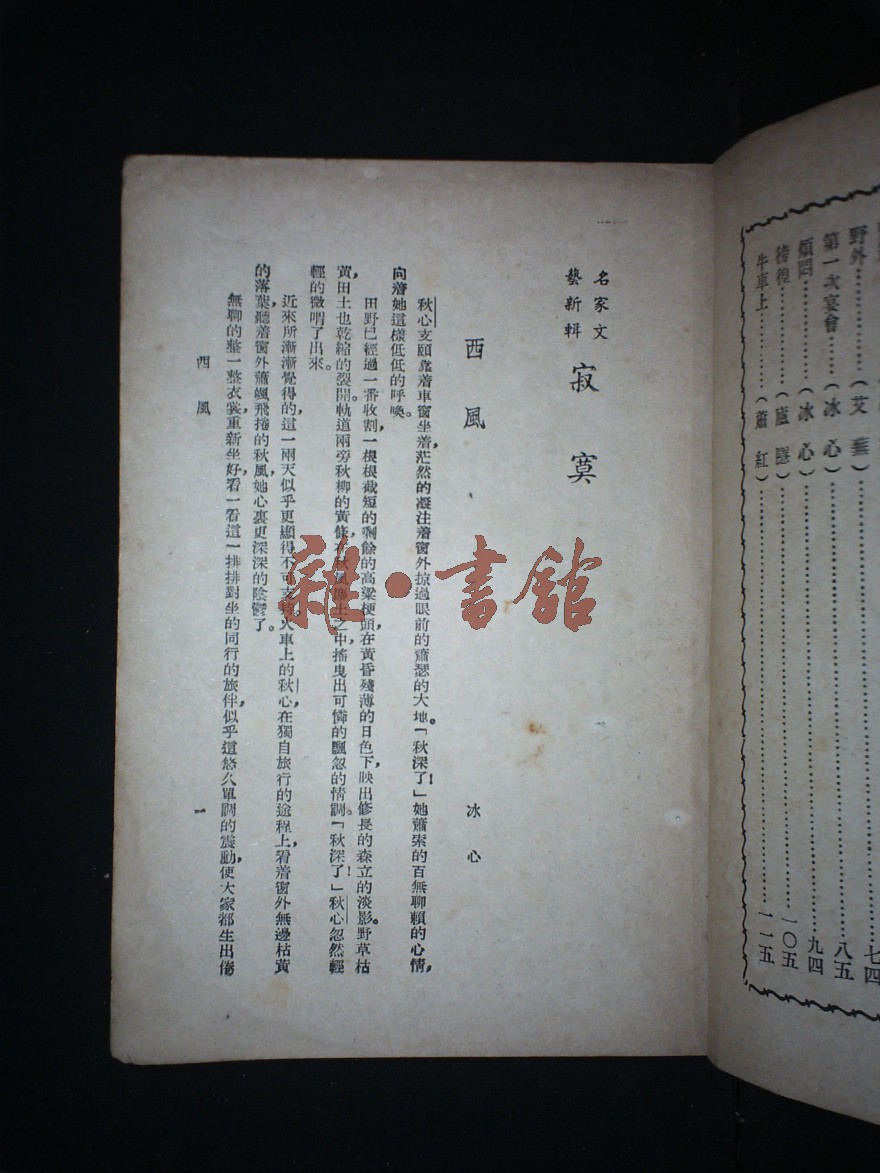 野外……………(艾蕪)……………七四
第一次宴會……(冰心)……………八五
煩悶……………(冰心)……………九四
徬徨……………(廬隱)……………一〇五
牛車上…………(蕭紅)……………一一五
名家文
藝新輯
寂寞
西風
冰心
秋心支頤靠着車窗坐着,茫然的凝注着窗外掠過眼前的蕭瑟的大地。「秋深了!」她蕭索的百無聊賴的心情,
向着她這樣低低的呼喚。
田野已經過一番收割,一根根截短的剩餘的高粱梗頭,在黃昏殘薄的日色下,映出修長的森立的淡影。野草枯
黃,田土也乾縮的裂開。軌道兩旁秋柳的黃條,在秋風塵土之中,搖曳出可憐的飄忽的情調。「秋深了!」秋心忽然輕
輕的微喟了出來。
近來所漸漸覺得的,這一兩天似乎更顯得不可支持。火車上的秋心,在獨自旅行的途程上,看着窗外無邊枯黃
的落葉,聽着窗外蕭颯飛捲的秋風,她心裏更深深的陰鬱了。
無聊的整一整衣裳,重新坐好,看一看這一排排對坐的同行的旅伴,似乎這悠久單調的震動,便大家都生出倦
西風
一
雜·書館